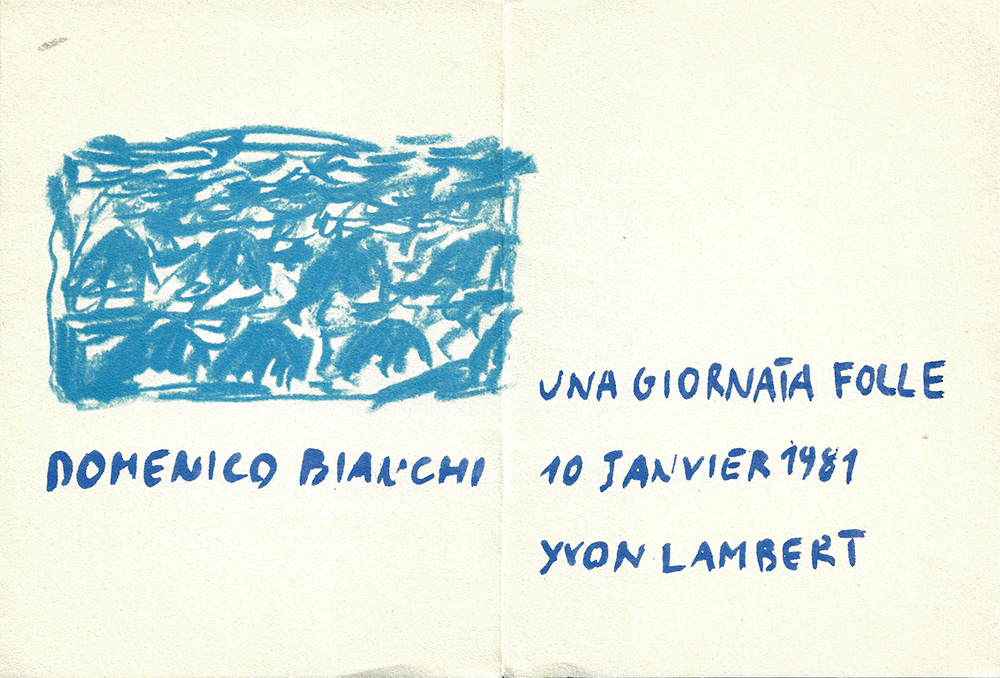 DOMENICO BIANCHI
UNA GIORNATA FOLLE
10 JANVIER 1981
YVON LAMBERT